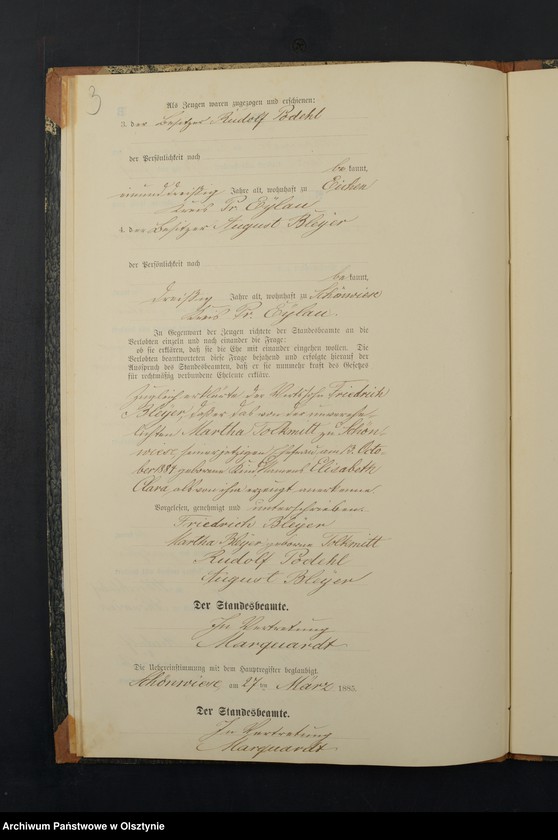 3
Als Zeugen waren zugezogen und erschienen:
3. der Besitzer Rudolf Podehl
der Persönlichkeit nach
be kannt,
einunddreißig Jahre alt, wohnhaft zu Eichen
Kreis Pr. Eylau
4. der Besitzer August Bleyer
der Persönlichkeit nach
be kannt,
dreißig Jahre alt, wohnhaft zu Schönwiese
Kreis Pr. Eylau.
In Gegenwart der Zeugen richtete der Standesbeamte an die
Verlobten einzeln und nach einander die Frage:
ob sie erklären, daß sie die Ehe mit einander eingehen wollen. Die
Verlobten beantworteten diese Frage bejahend und erfolgte hierauf der
Ausspruch des Standesbeamten, daß er sie nunmehr kraft des Gesetzes
für rechtmäßig verbundene Eheleute erkläre.
Zugleich erklärte der Friedrich
Bleyer, daß er das von der unverehe-
lichten Martha Tolkmitt zu Schön-
wiese, seiner jetzigen Ehefrau, am 13. Octo-
ber 1884 geborene Kind Namens Elisabeth
Clara, als von ihm erzeugt anerkenne
Vorgelesen, genehmigt und unterschrieben.
Friedrich Bleyer
Martha Bleyer geborene Tolkmitt
Rudolf Podehl
August Bleyer
Der Standesbeamte.
In Vertretung
Marquardt
Die Uebereinstimmung mit dem Hauptregister beglaubigt.
Schönwiese, am 27 ten März 1885.
Der Standesbeamte.
In Vertretung
Marquardt
Archiwum Państwowe w Olsztynie